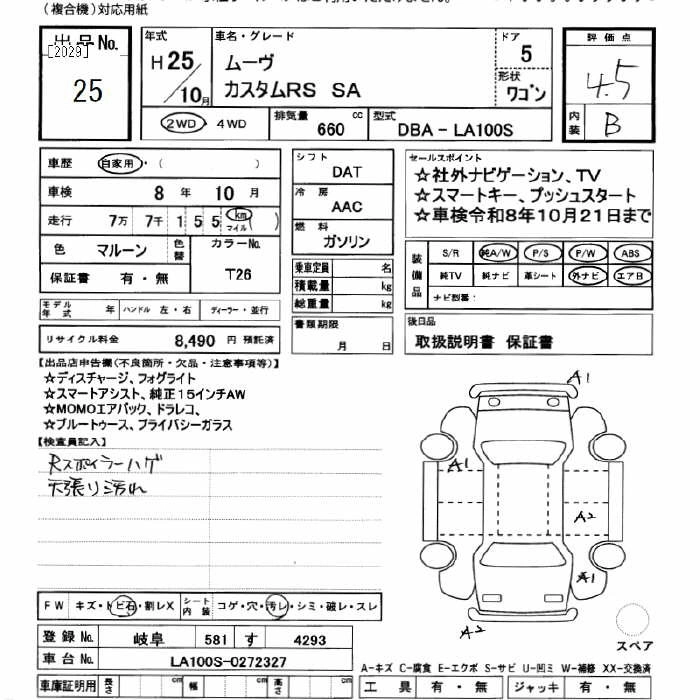 （複合機）対応用紙
出品No.
[2029]
25
年式
H25/10月
車名・グレード
ムーヴ
カスタムRS SA
ドア
5
形状
ワゴン
評価点
4.5
内装
B
2WD・4WD
排気量
660 cc
型式
DBA - LA100S
車歴 自家用・（ ）
車検 8 年 10 月
走行 7万 7千 1 5 5 km マイル ( )
色 マルーン 色替
カラーNo.
T26
保証書 有・無
シフト
DAT
冷房
AAC
燃料
ガソリン
乗車定員 名
積載量 kg
総重量 kg
書類期限
月 日
セールスポイント
☆社外ナビゲーション、TV
☆スマートキー、プッシュスタート
☆車検令和8年10月21日まで
装備品
S/R 純A/W P/S P/W ABS
純TV 純ナビ 革シート 外ナビ エアB
ナビ型番：
モデル年式 年 ハンドル 左・右 ディーラー・並行
リサイクル料金 8,490 円 預託済
後日品
取扱説明書 保証書
【出品店申告欄(不良箇所・欠品・注意事項等)】
☆ディスチャージ、フォグライト
☆スマートアシスト、純正15インチAW
☆MOMOエアバック、ドラレコ、
☆ブルートゥース、プライバシーガラス
【検査員記入】
Rスポイラーハゲ
天張り汚れ
A1
A1
A2
A1
A2
スペア
FW キズ・トビ石・割レX シート内装 コゲ・穴・汚レ・シミ・破レ・スレ
登録No. 岐阜 581 す 4293
車台No. LA100S-0272327
車庫証明用 長さ cm 幅 cm 高さ cm
A-キズ C-腐食 E-エクボ S-サビ U-凹ミ W-補修 XX-交換済
工具 有・無 ジャッキ 有・無